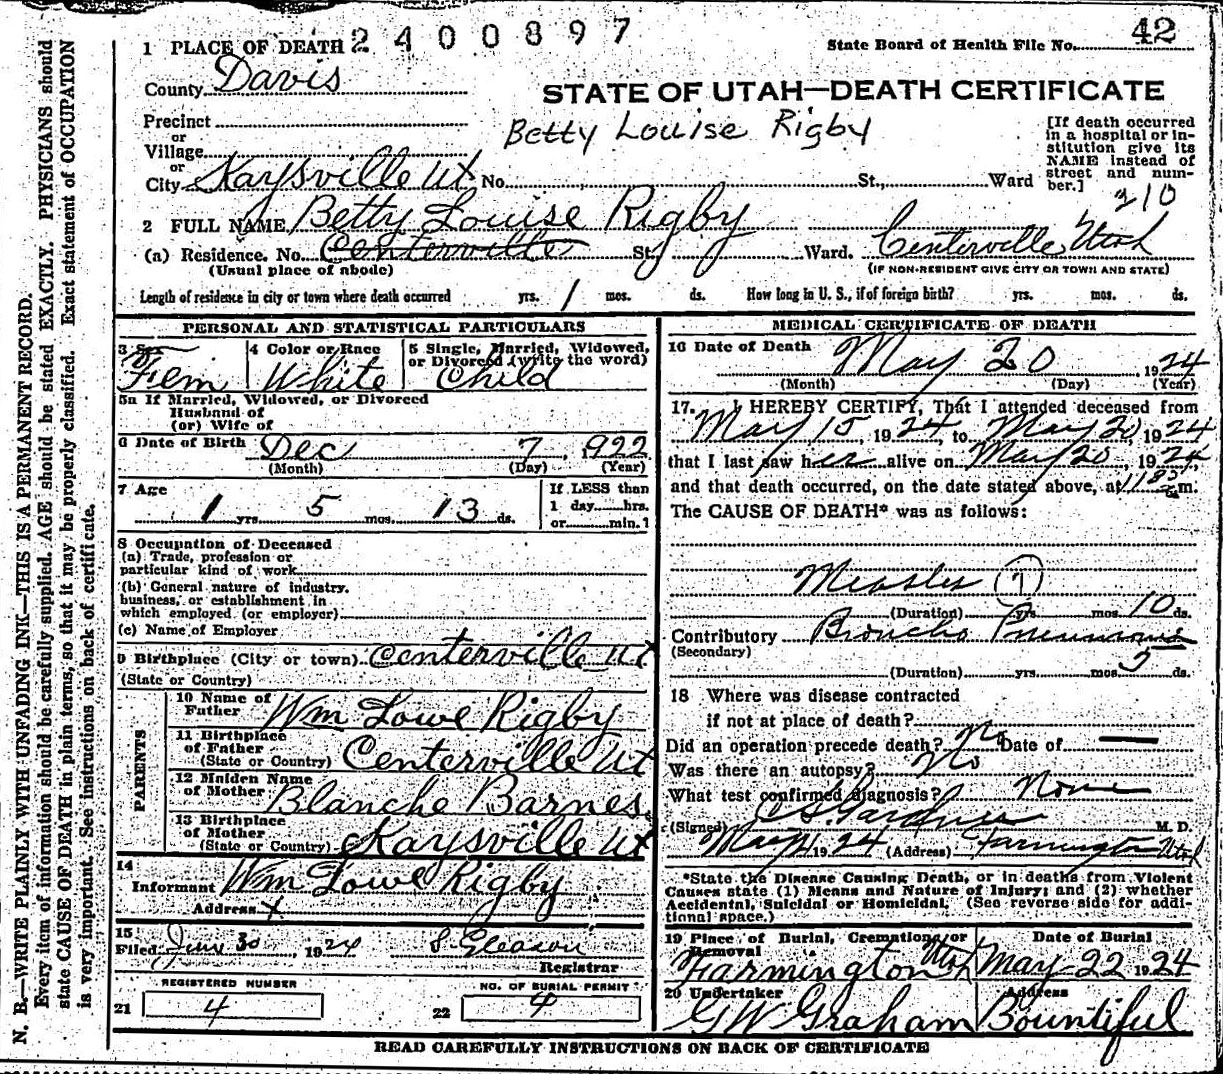 2400897
42
1 PLACE OF DEATH
State Board of Health File No.
County Davis
STATE OF UTAH—DEATH CERTIFICATE
Precinct
Betty Louise Rigby
or
Village
or
City Kaysville Ut No. St., Ward
[If death occurred
in a hospital or in-
stitution give its
NAME instead of
street and num-
ber.]
210
2 FULL NAME Betty Louise Rigby
(a) Residence. No. Centerville St. Ward. Centerville Utah
(Usual place of abode)
(IF NON-RESIDENT GIVE CITY OR TOWN AND STATE)
Length of residence in city or town where death occurred yrs. 1 mos. ds. How long in U. S., if of foreign birth? yrs. mos. ds.
PERSONAL AND STATISTICAL PARTICULARS
3 Sex
Fem
4 Color or Race
White
5 Single, Married, Widowed,
or Divorced (write the word)
Child
5a If Married, Widowed, or Divorced
Husband of
(or) Wife of
6 Date of Birth Dec 7, 1922
(Month) (Day) (Year)
7 Age
1 yrs. 5 mos. 13 ds.
If LESS than
1 day hrs.
or min.?
8 Occupation of Deceased
(a) Trade, profession or
particular kind of work
(b) General nature of industry,
business, or establishment in
which employed (or employer)
(c) Name of Employer
9 Birthplace (City or town) Centerville Ut
(State or Country)
PARENTS
10 Name of
Father Wm Lowe Rigby
11 Birthplace
of Father
(State or Country) Centerville Ut
12 Maiden Name
of Mother Blanche Barnes
13 Birthplace
of Mother
(State or Country) Kaysville Ut
14
Informant Wm Lowe Rigby
Address
15
Filed June 30, 1924 S Gleason
Registrar
REGISTERED NUMBER
21 4
NO. OF BURIAL PERMIT
22 4
MEDICAL CERTIFICATE OF DEATH
16 Date of Death May 20 1924
(Month) (Day) (Year)
17. I HEREBY CERTIFY, That I attended deceased from
May 15, 1924, to May 20, 1924
that I last saw her alive on May 20, 1924,
and that death occurred, on the date stated above, at m.
The CAUSE OF DEATH* was as follows:
Measles (7)
(Duration) yrs. mos. 10 ds.
Contributory Broncho Pneumonia
(Secondary)
(Duration) yrs. mos. 5 ds.
18 Where was disease contracted
if not at place of death?
Did an operation precede death? No Date of —
Was there an autopsy? No
What test confirmed diagnosis? None
(Signed) Gardner M. D.
May 1924 (Address) Farmington Utah
*State the Disease Causing Death, or in deaths from Violent
Causes state (1) Means and Nature of Injury; and (2) whether
Accidental, Suicidal or Homicidal. (See reverse side for addi-
tional space.)
19 Place of Burial, Cremation, or
Removal
Farmington Utah
Date of Burial
May 22 1924
20 Undertaker
G W Graham
Address
Bountiful
READ CAREFULLY INSTRUCTIONS ON BACK OF CERTIFICATE
N. B.—WRITE PLAINLY WITH UNFADING INK—THIS IS A PERMANENT RECORD.
Every item of information should be carefully supplied. AGE should be stated EXACTLY. PHYSICIANS should
state CAUSE OF DEATH in plain terms, so that it may be properly classified. Exact statement of OCCUPATION
is very important. See instructions on back of certificate.